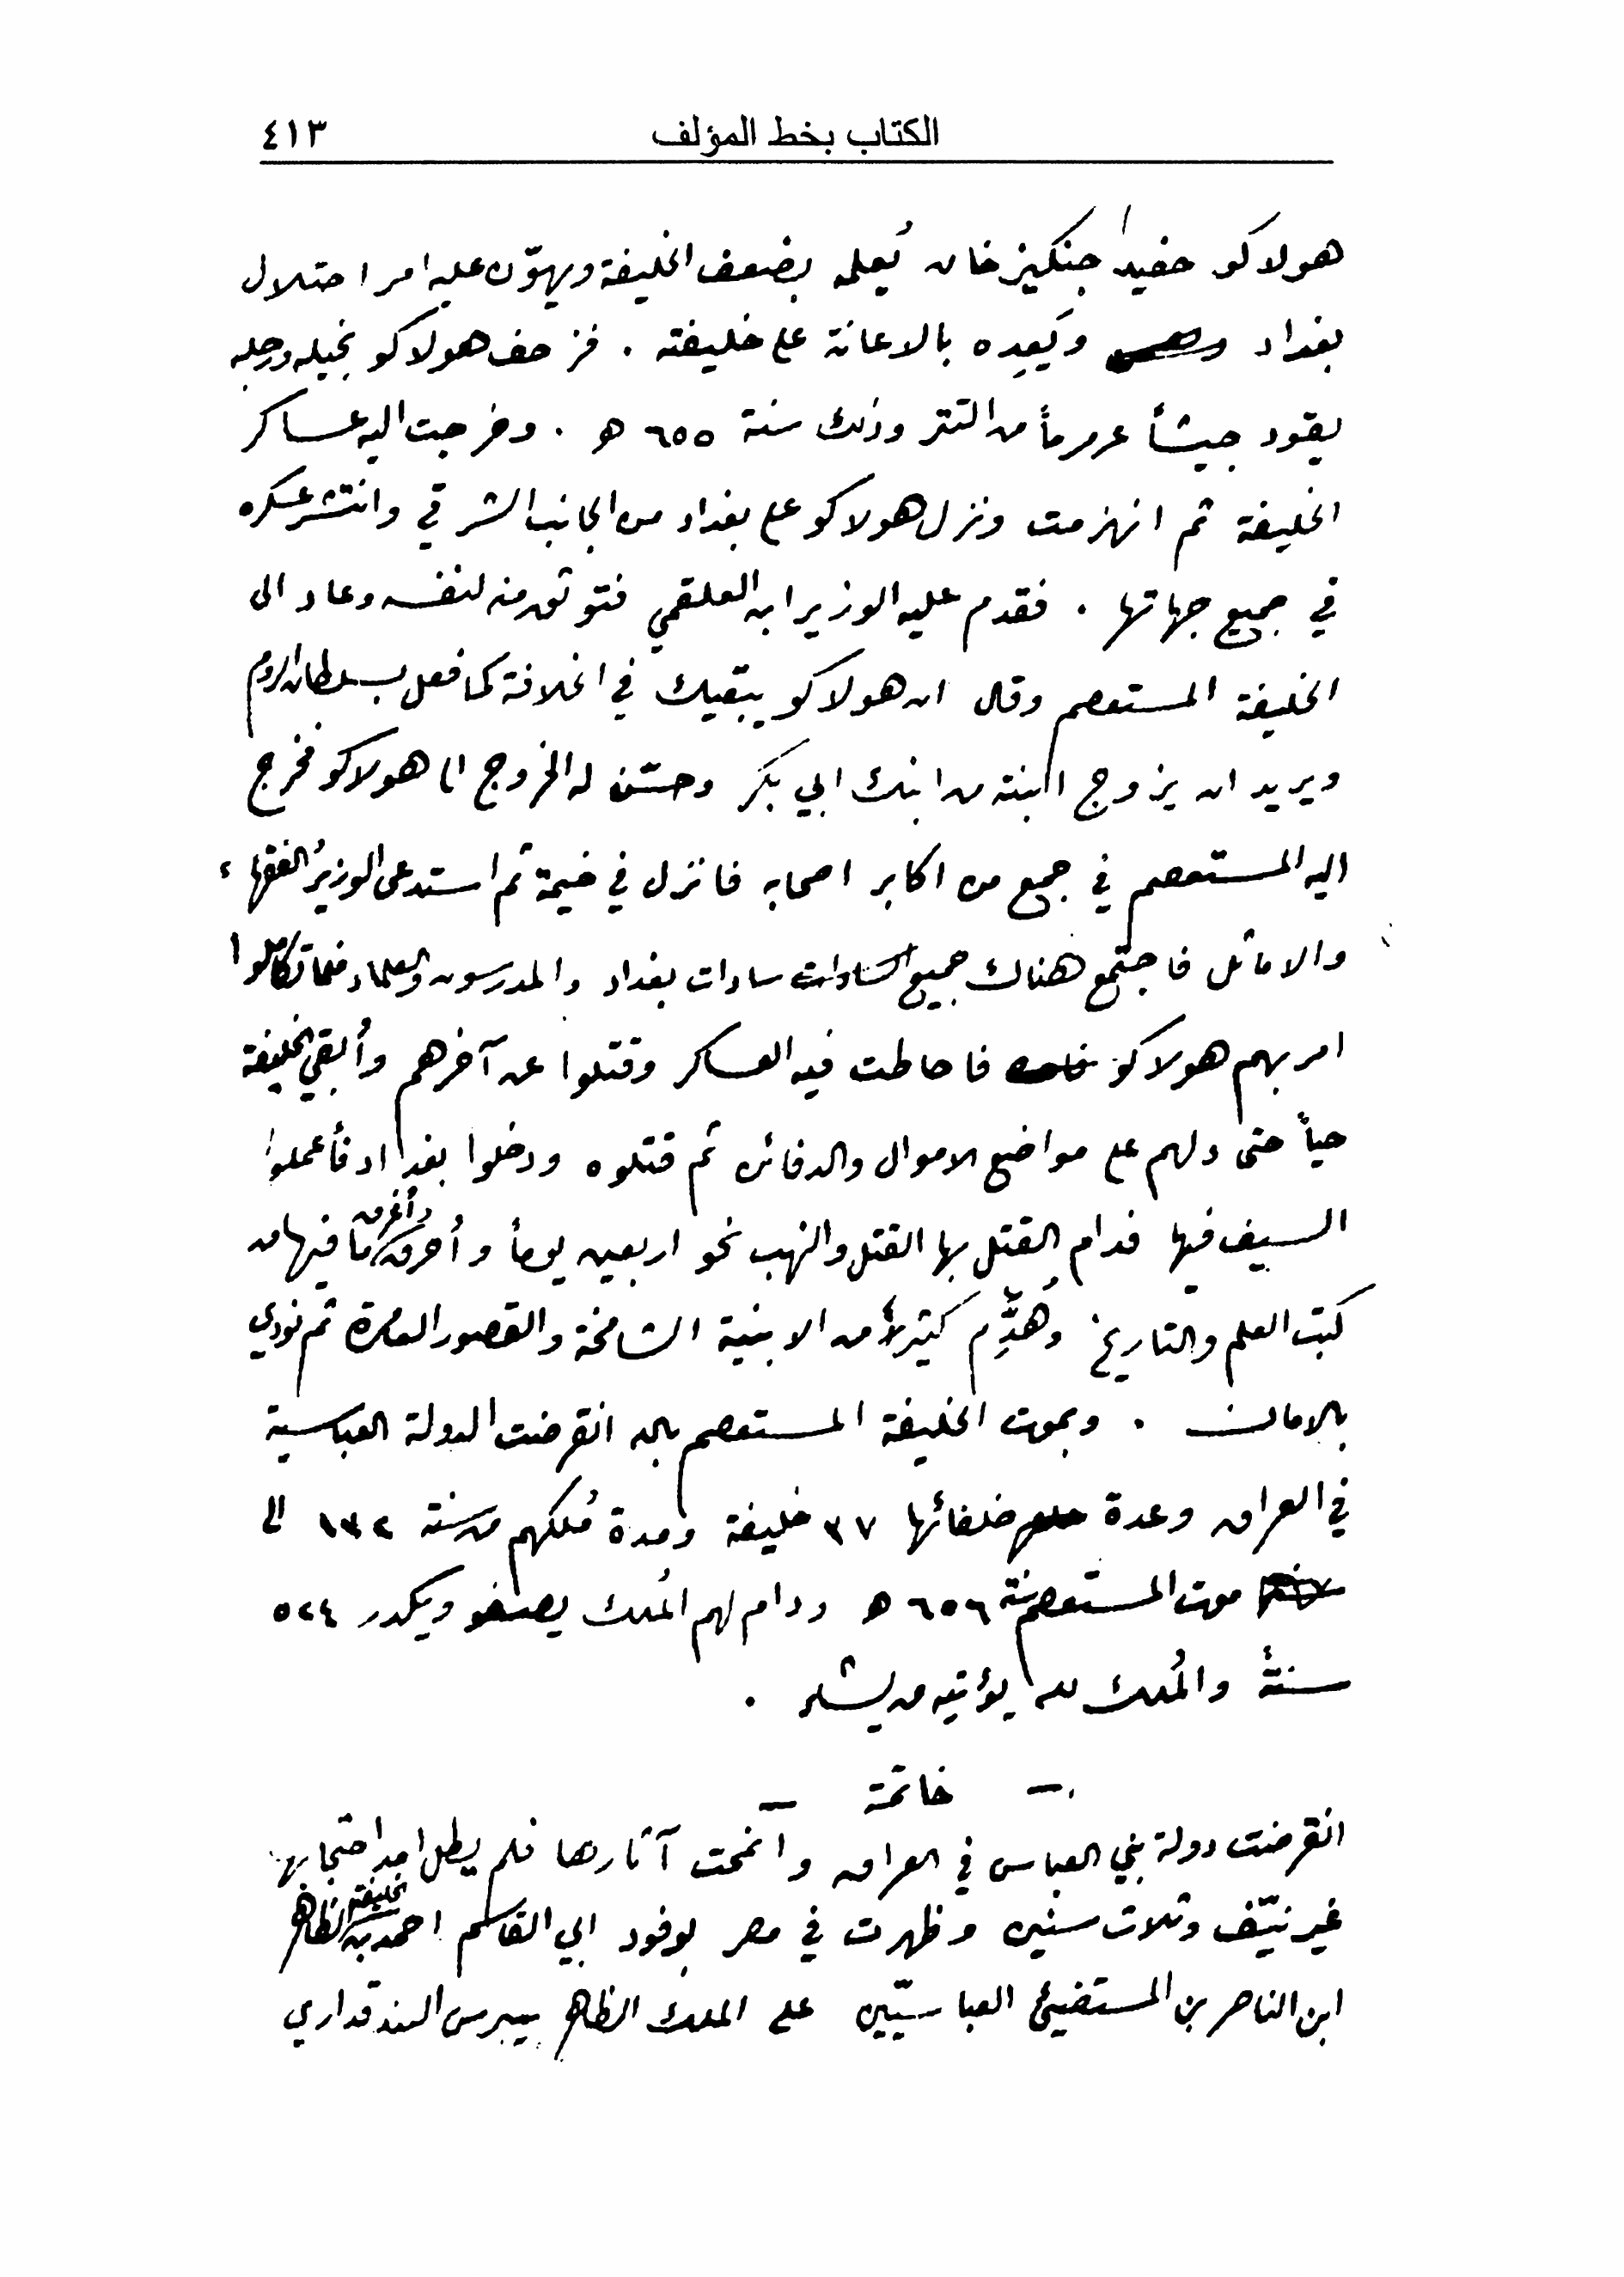 الكتاب بخط المؤلف ٤١٣
هولاكو حفيد جنكيز خان يُعلمه بضعف الخليفة ويهوّن عليه امر احتلال
بغداد ويَعِده بالاعانة على خليفته . فزحف هولاكو بخيله ورجله
يقود جيشاً عرمرماً من التتر وذلك سنة ٦٥٥ هـ . وخرجت اليه عساكر
الخليفة ثم انهزمت ونزل هولاكو على بغداد من الجانب الشرقي وانتشر عسكره
في جميع جهاتها . فقدم عليه الوزير ابن العلقمي فتوثق منه لنفسه وعاد الى
الخليفة المستعصم وقال ان هولاكو يبقيك في الخلافة كما فعل بسلطان الروم
ويريد ان يزوج ابنته من ابنك ابي بكر وحسّن له الخروج الى هولاكو فخرج
اليه المستعصم في جمع من اكابر اصحابه فانزل في خيمة ثم استدعى الوزيرُ الفقهاء
والاماثل فاجتمع هناك جميع سادات بغداد والمدرسون والعلماء فلما تكاملوا
امر بهم هولاكو فاحاطت فيه العساكر وقتلوا عن آخرهم وأُبقي الخليفة
حياً حتى دلهم على مواضع الاموال والدفائن ثم قتلوه ودخلوا بغداد فأعملوا
السيف فيها فدام القتل بها القتل والنهب نحو اربعين يوماً وأُحرق وأُغرق ما فيها من
كتب العلم والتاريخ وهُدِّم كثير من الابنية الشامخة والقصور العامرة ثم نودي
بالامان . وبموت الخليفة المستعصم بالله انقرضت الدولة العباسية
في العراق وعدة خلفائها ٣٧ خليفة ومدة مُلكهم من سنة ١٣٢ الى
موت المستعصم سنة ٦٥٦ هـ ودام لهم المُلك يصفو ويكدر ٥٢٤
سنةً والمُلك لله يؤتيه من يشاء .
— خاتمة —
انقرضت دولة بني العباس في العراق وانمحت آثارها فلم يطل امد احتجابها
غير نيّف وثلاث سنين وظهرت في مصر بوفود ابي القاسم احمد بن الخليفة الظاهر
ابن الناصر بن المستضيئ العباسيّين على الملك الظاهر بيبرس البندقداري